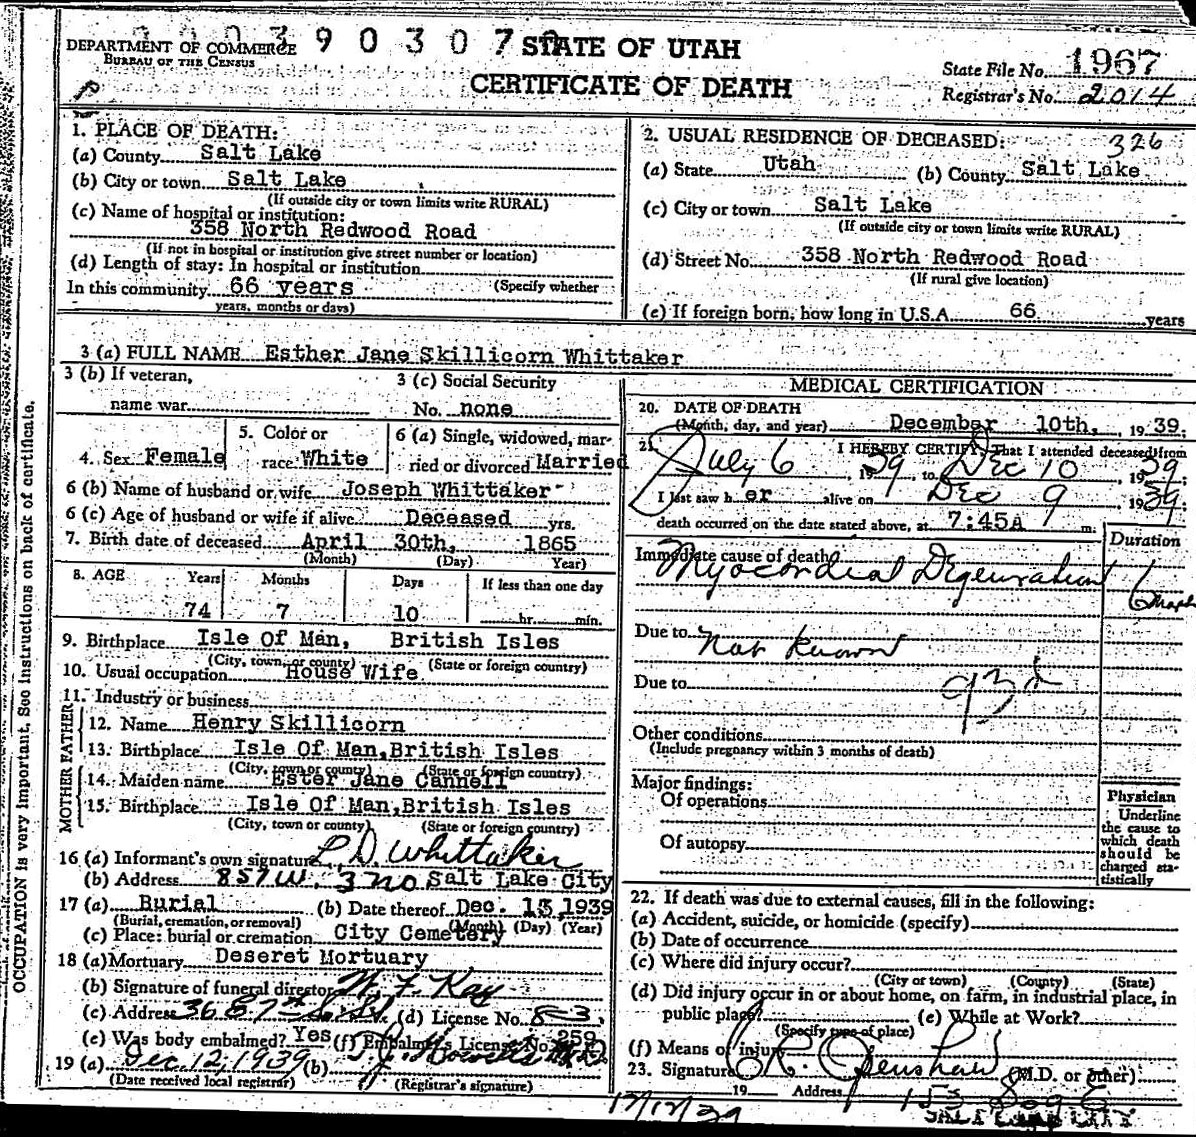 DEPARTMENT OF COMMERCE
BUREAU OF THE CENSUS
390307
STATE OF UTAH
CERTIFICATE OF DEATH
State File No. 1967
Registrar's No. 2014
1. PLACE OF DEATH:
(a) County Salt Lake
(b) City or town Salt Lake
(If outside city or town limits write RURAL)
(c) Name of hospital or institution:
358 North Redwood Road
(If not in hospital or institution give street number or location)
(d) Length of stay: In hospital or institution
In this community 66 years (Specify whether
years, months or days)
2. USUAL RESIDENCE OF DECEASED: 326
(a) State Utah (b) County Salt Lake
(c) City or town Salt Lake
(If outside city or town limits write RURAL)
(d) Street No. 358 North Redwood Road
(If rural give location)
(e) If foreign born, how long in U.S.A. 66 years
3 (a) FULL NAME Esther Jane Skillicorn Whittaker
3 (b) If veteran,
name war
3 (c) Social Security
No. none
4. Sex Female
5. Color or
race White
6 (a) Single, widowed, mar-
ried or divorced Married
6 (b) Name of husband or wife Joseph Whittaker
6 (c) Age of husband or wife if alive Deceased yrs.
7. Birth date of deceased April 30th, 1865
(Month) (Day) Year)
8. AGE Years Months Days If less than one day
74 7 10 hr. min.
9. Birthplace Isle Of Man, British Isles
(City, town, or county) (State or foreign country)
10. Usual occupation House Wife
11. Industry or business
FATHER
12. Name Henry Skillicorn
13. Birthplace Isle Of Man, British Isles
(City, town or county) (State or foreign country)
MOTHER
14. Maiden name Ester Jane Cannell
15. Birthplace Isle Of Man, British Isles
(City, town or county) (State or foreign country)
16 (a) Informant's own signature L D Whittaker
(b) Address 857 W. 3 no Salt Lake City
17 (a) Burial (b) Date thereof Dec. 13, 1939
(Burial, cremation, or removal) (Month) (Day) (Year)
(c) Place: burial or cremation City Cemetery
18 (a) Mortuary Deseret Mortuary
(b) Signature of funeral director W. F. Kay
(c) Address (d) License No. 83
(e) Was body embalmed? Yes (f) Embalmer's License No. 259
19 (a) Dec. 12, 1939 (b)
(Date received local registrar) (Registrar's signature)
MEDICAL CERTIFICATION
20. DATE OF DEATH
(Month, day, and year) December 10th, 1939.
21. I HEREBY CERTIFY, That I attended deceased from
July 6, 1939, to Dec 10, 1939;
I last saw h er alive on Dec 9 1939;
death occurred on the date stated above, at 7:45A m.
Duration
Immediate cause of death
Myocardial Degeneration 6
Due to Not known
Due to
93d
Other conditions
(Include pregnancy within 3 months of death)
Major findings:
Of operations
Of autopsy
Physician
Underline
the cause to
which death
should be
charged sta-
tistically
22. If death was due to external causes, fill in the following:
(a) Accident, suicide, or homicide (specify)
(b) Date of occurrence
(c) Where did injury occur?
(City or town) (County) (State)
(d) Did injury occur in or about home, on farm, in industrial place, in
public place? (e) While at Work?
(Specify type of place)
(f) Means of injury
23. Signature (M.D. or other)
19 Address 153
12/12/39
OCCUPATION is very Important. See instructions on back of certificate.